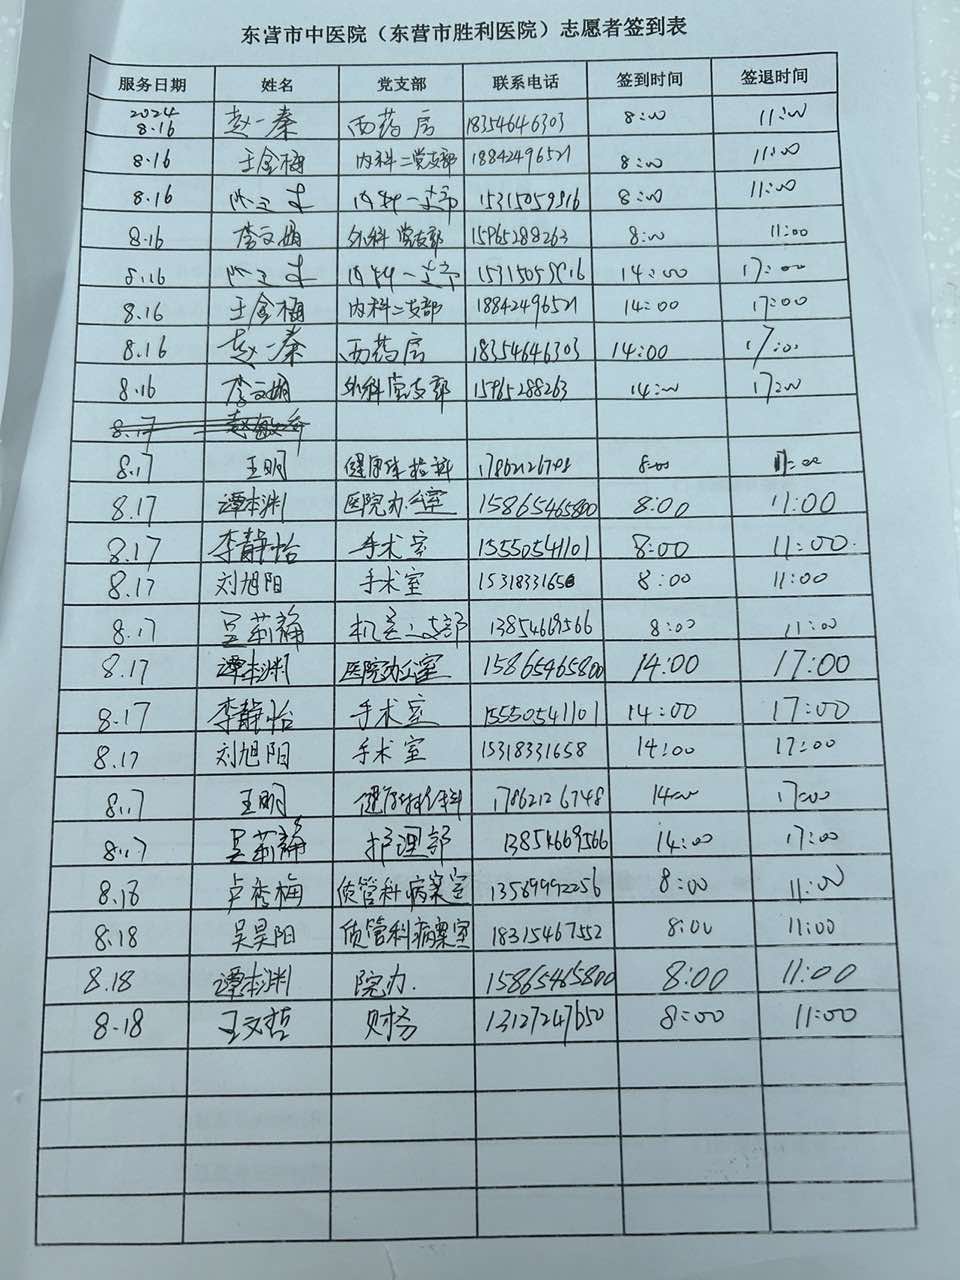 东营市中医院（东营市胜利医院）志愿者签到表
服务日期 姓名 党支部 联系电话 签到时间 签退时间
2024 8.16 赵一秦 西药房 18354646303 8:00 11:00
8.16 王金梅 内科二党支部 18842496521 8:00 11:00
8.16 内科一支部 15315059816 8:00 11:00
8.16 李文娟 外科党支部 15965288263 8:00 11:00
8.16 内科一支部 15315059816 14:00 17:00
8.16 王金梅 内科二支部 18842496521 14:00 17:00
8.16 赵一秦 西药房 18354646303 14:00 17:00
8.16 李文娟 外科党支部 15965288263 14:00 17:00
8.17
8.17 王明 8:00 11:00
8.17 谭本渊 医院办公室 15865465800 8:00 11:00
8.17 李静怡 手术室 15550541101 8:00 11:00
8.17 刘旭阳 手术室 15318331658 8:00 11:00
8.17 吴莉静 13854669566 8:00 11:00
8.17 谭本渊 医院办公室 15865465800 14:00 17:00
8.17 李静怡 手术室 15550541101 14:00 17:00
8.17 刘旭阳 手术室 15318331658 14:00 17:00
8.17 王明 17862126748 14:00 17:00
8.17 吴莉静 护理部 13854669566 14:00 17:00
8.18 卢秀梅 质管科病案室 13589992256 8:00 11:00
8.18 吴昊阳 质管科病案室 18315467552 8:00 11:00
8.18 谭本渊 院办. 15865465800 8:00 11:00
8.18 王文哲 财务 13127247650 8:00 11:00